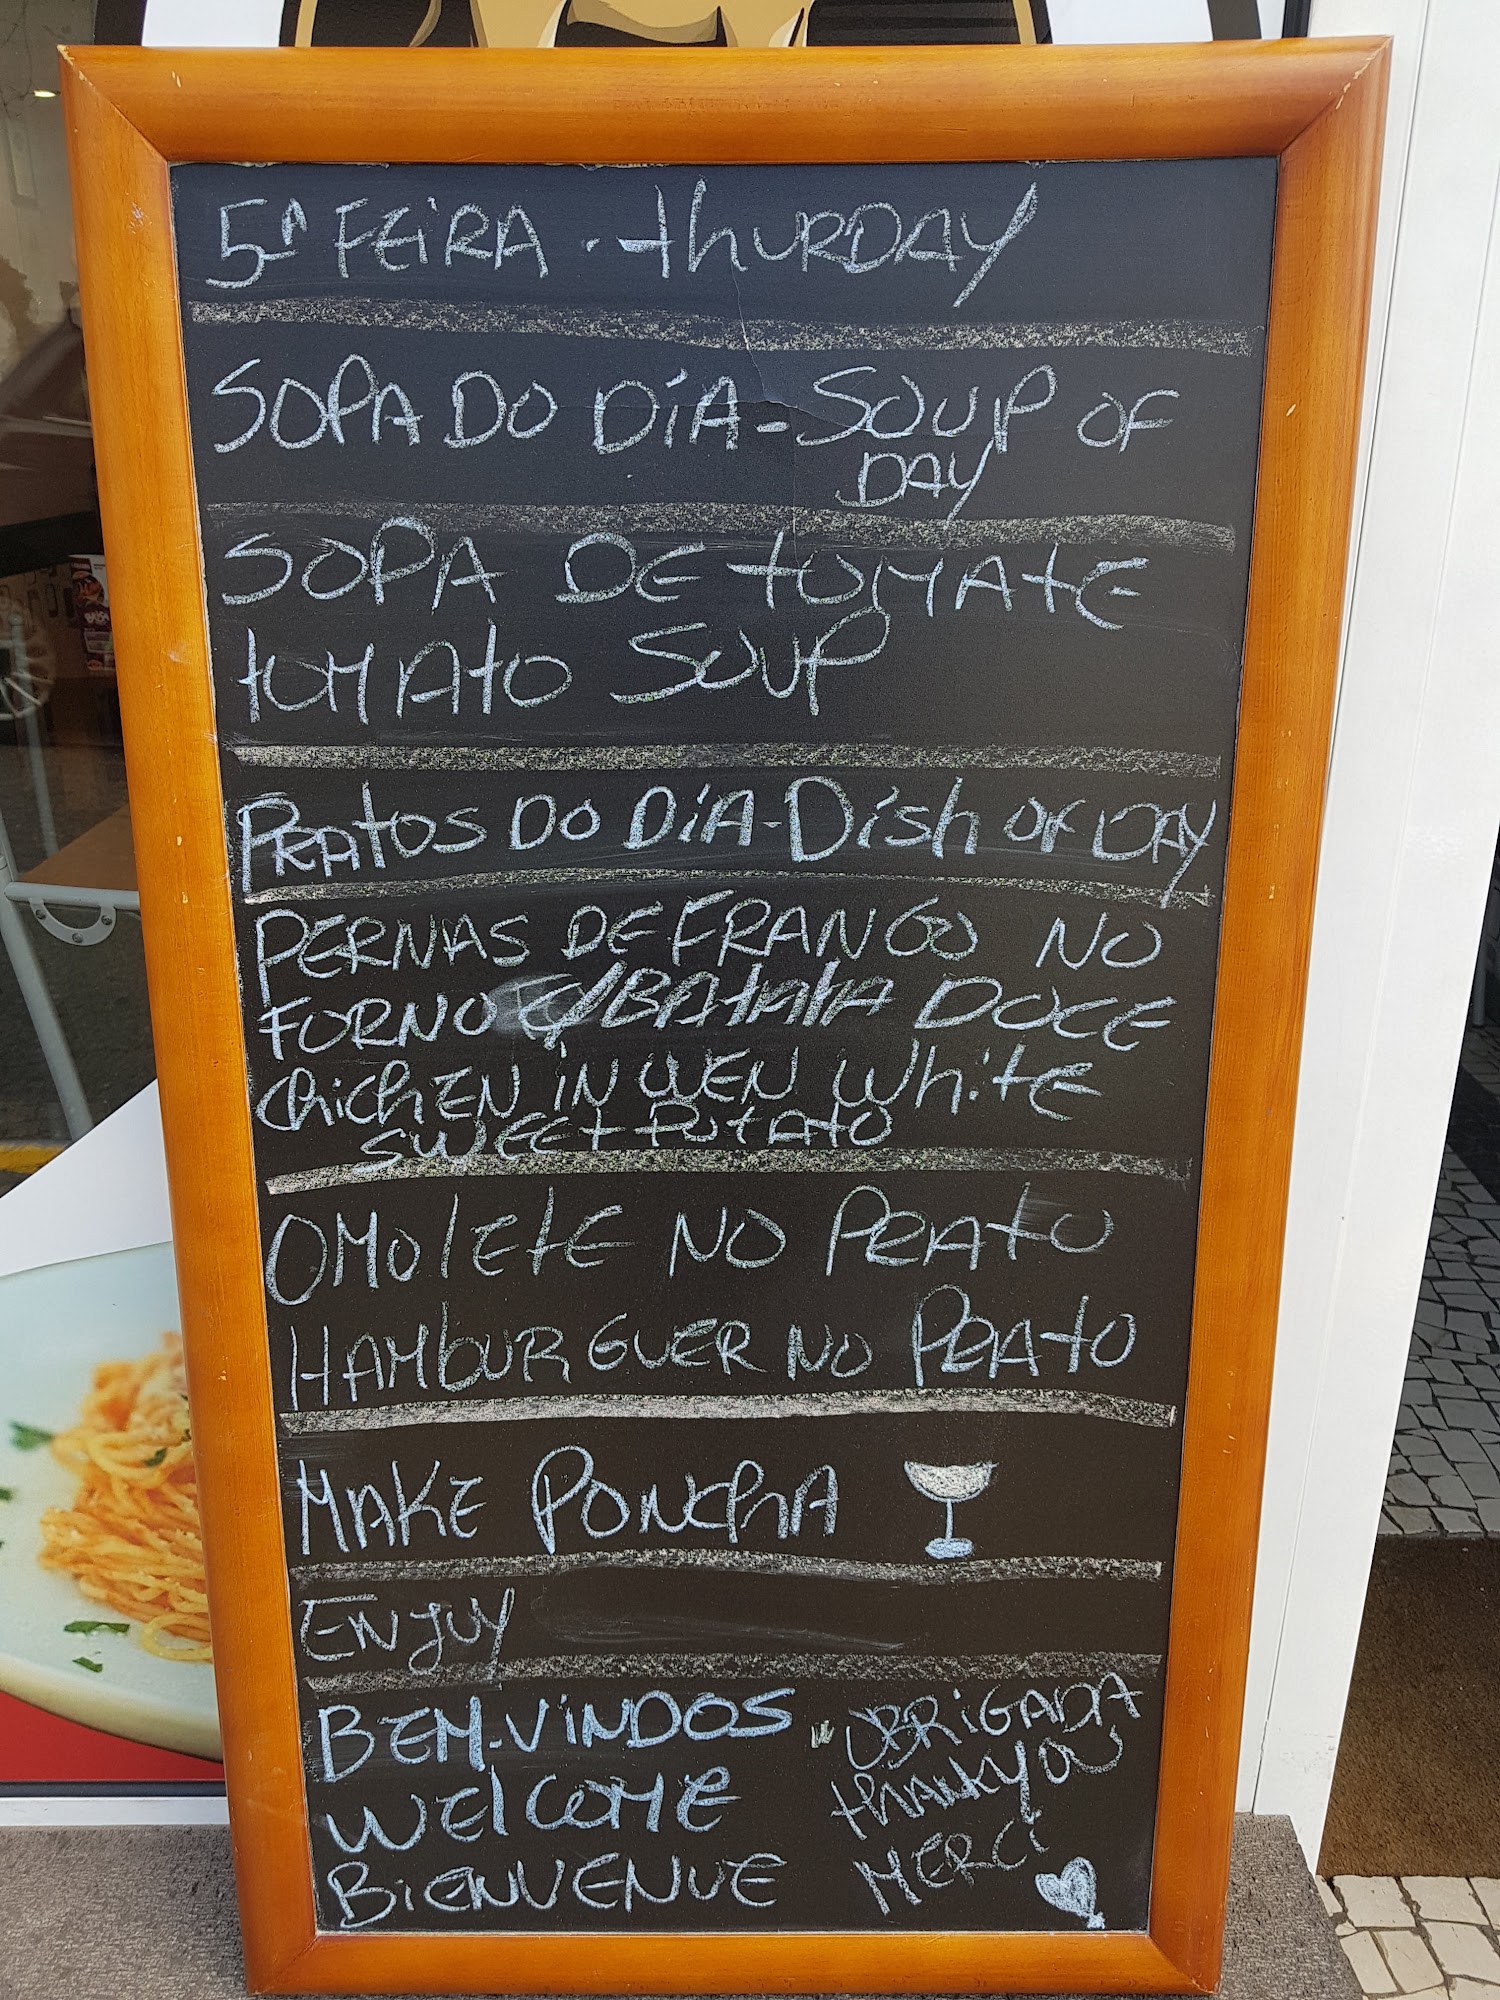 5ª FEiRA . thURDAY
SOPA DO DiA - SOUP OF
DAY
SOPA DE tOMAtE
tOMAtO SOUP
PRAtOS DO DiA - Dish OF DAY
PERNAS DE FRANGO NO
FORNO C/BAtAtA DOCE
ChichEN iN WEN White
SWEEt POtAtO
OMOlEtE NO PRAtO
HAMbURGUER NO PRAtO
MAKE PONChA
ENJOY
BEM-ViNDOS
WElCOME
BiENVENUE
OBRiGADA
thANKYOU
MERCi